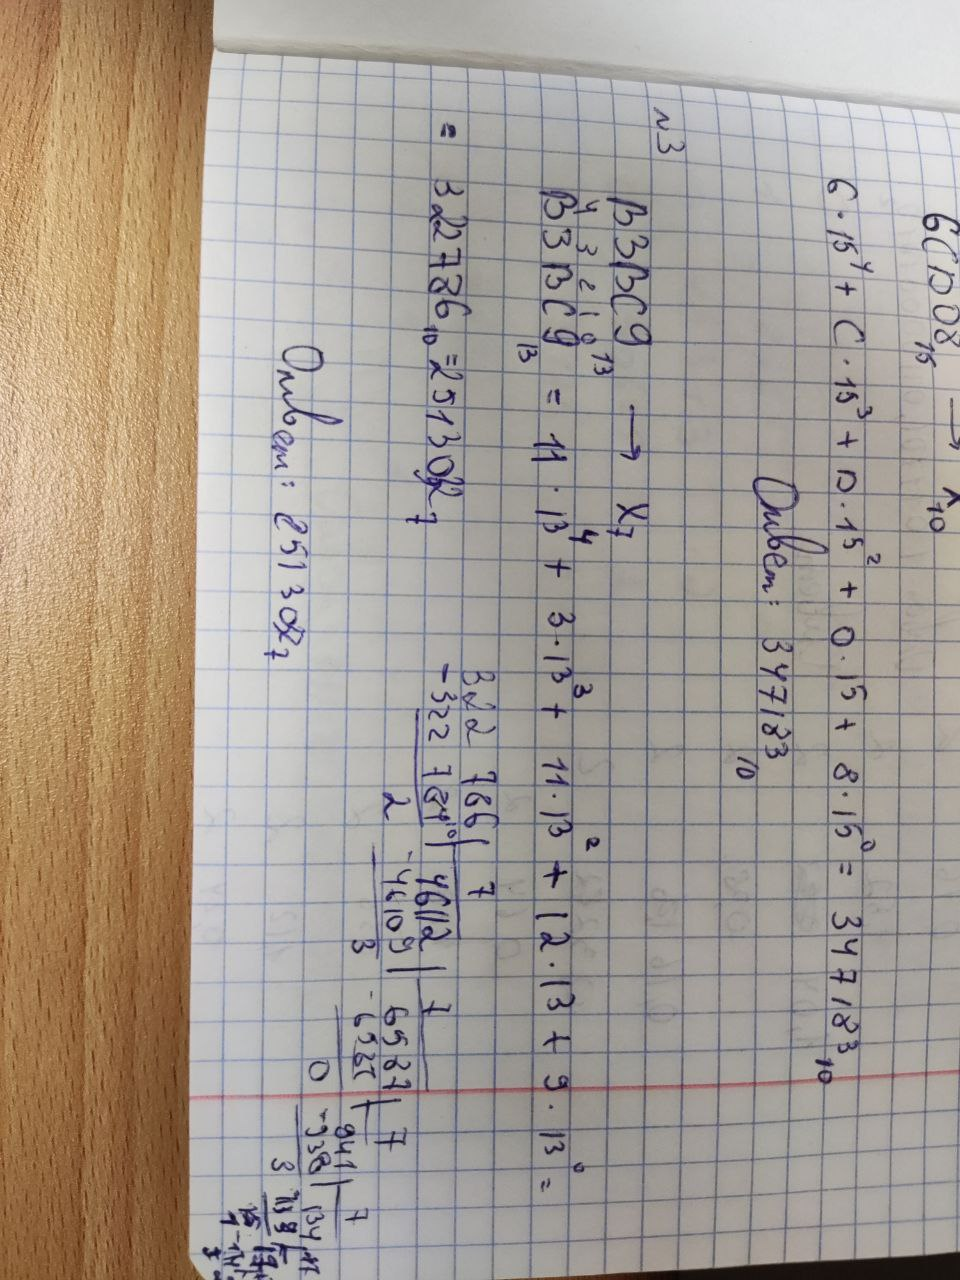 6CD08₁₅ → X₁₀
6·15⁴ + C·15³ + D·15² + 0·15 + 8·15⁰ = 347183₁₀
Ответ: 347183₁₀
№3 B3BC9₁₃ → X₇
4 3 2 1 0
B3BC9₁₃ = 11·13⁴ + 3·13³ + 11·13² + 12·13 + 9·13⁰ =
= 322786₁₀ = 251302₇
322 786 | 7
-322 784 | 46112 | 7
2 -46109 | 6587 | 7
3 -6587 | 941 | 7
0 -938 | 134
3
Ответ: 251302₇